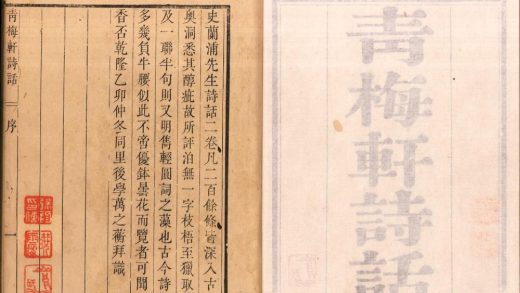 青梅軒詩話
史蘭浦先生詩話二卷凡二百餘條皆深入古
奥洞悉其醇疵故所評泊無一字枝梧至獵取
及一聯半句則又明雋輕圓詞之藻也古今詩
多幾負牛腰似此不啻優鉢曇花而覽者可聞
香否乾隆乙卯仲冬同里後學萬之蘅拜識
青梅軒詩話 序 一